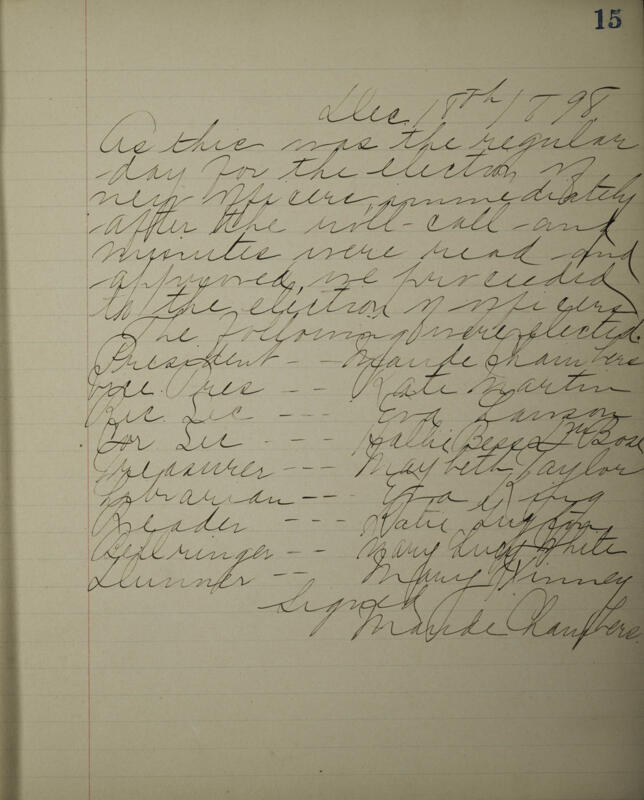 15
Dec. 18th 1898
As this was the regular
day for the election of
new officers, immediately
after the roll-call and
minutes were read and
approved, we proceeded
to the election of officers
The following were elected.
President -- Maude Chambers
Vice Pres -- Kate Martin
Rec. Sec --- Eva Lawson
Cor Sec --- Hallie Bess
Treasurer --- May beth Taylor
Librarian --- Eva King
Reader --- Katie
Bellringer -- Mary Lucy White
Dunner -- Mary Kinney
Signed
Maude Chambers.